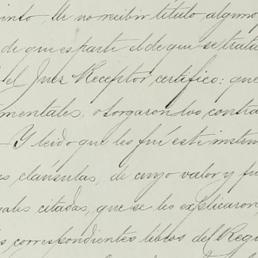 into. De no recibir título alguno,
de que es parte el de que se trata
el Juez Receptor, certifico: que
mentales, otorgaron los contra
Y leído que les fué este instru
es cláusulas, de cuyo valor y fu
gales citadas, que se les explicaron,
s correspondientes libros del Regis